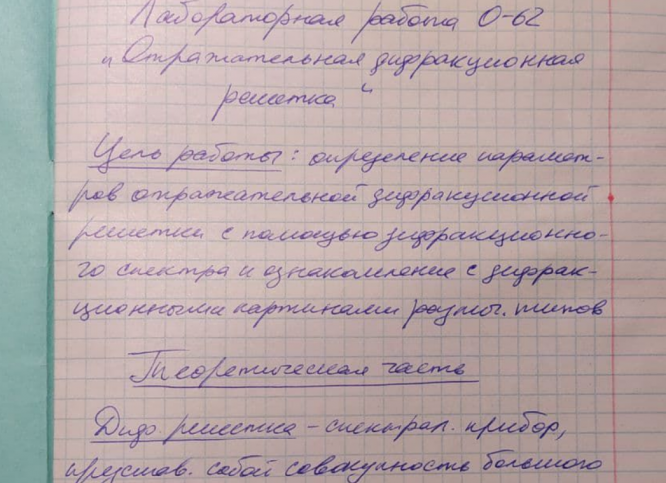 Лабораторная работа О-62
„Отражательная дифракционная
решетка“
Цель работы: определение парамет-
ров отражательной дифракционной
решетки с помощью дифракционно-
го спектра и ознакомление с дифрак-
ционными картинами разлы. типов
Теоретическая часть
Диф. решетка – спектрал. прибор,
представ. собой совокупность большого